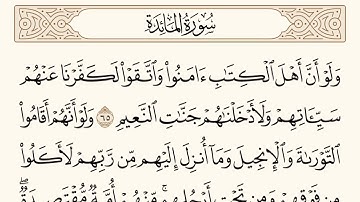 سُورَةُ المَائِدَةِ
وَلَوْ أَنَّ أَهْلَ ٱلْكِتَٰبِ ءَامَنُوا۟ وَٱتَّقَوْا۟ لَكَفَّرْنَا عَنْهُمْ
سَيِّـَٔاتِهِمْ وَلَأَدْخَلْنَٰهُمْ جَنَّٰتِ ٱلنَّعِيمِ ٦٥ وَلَوْ أَنَّهُمْ أَقَامُوا۟
ٱلتَّوْرَىٰةَ وَٱلْإِنجِيلَ وَمَآ أُنزِلَ إِلَيْهِم مِّن رَّبِّهِمْ لَأَكَلُوا۟
مِن فَوْقِهِمْ وَمِن تَحْتِ أَرْجُلِهِم ۚ مِّنْهُمْ أُمَّةٌ مُّقْتَصِدَةٌ ۖ